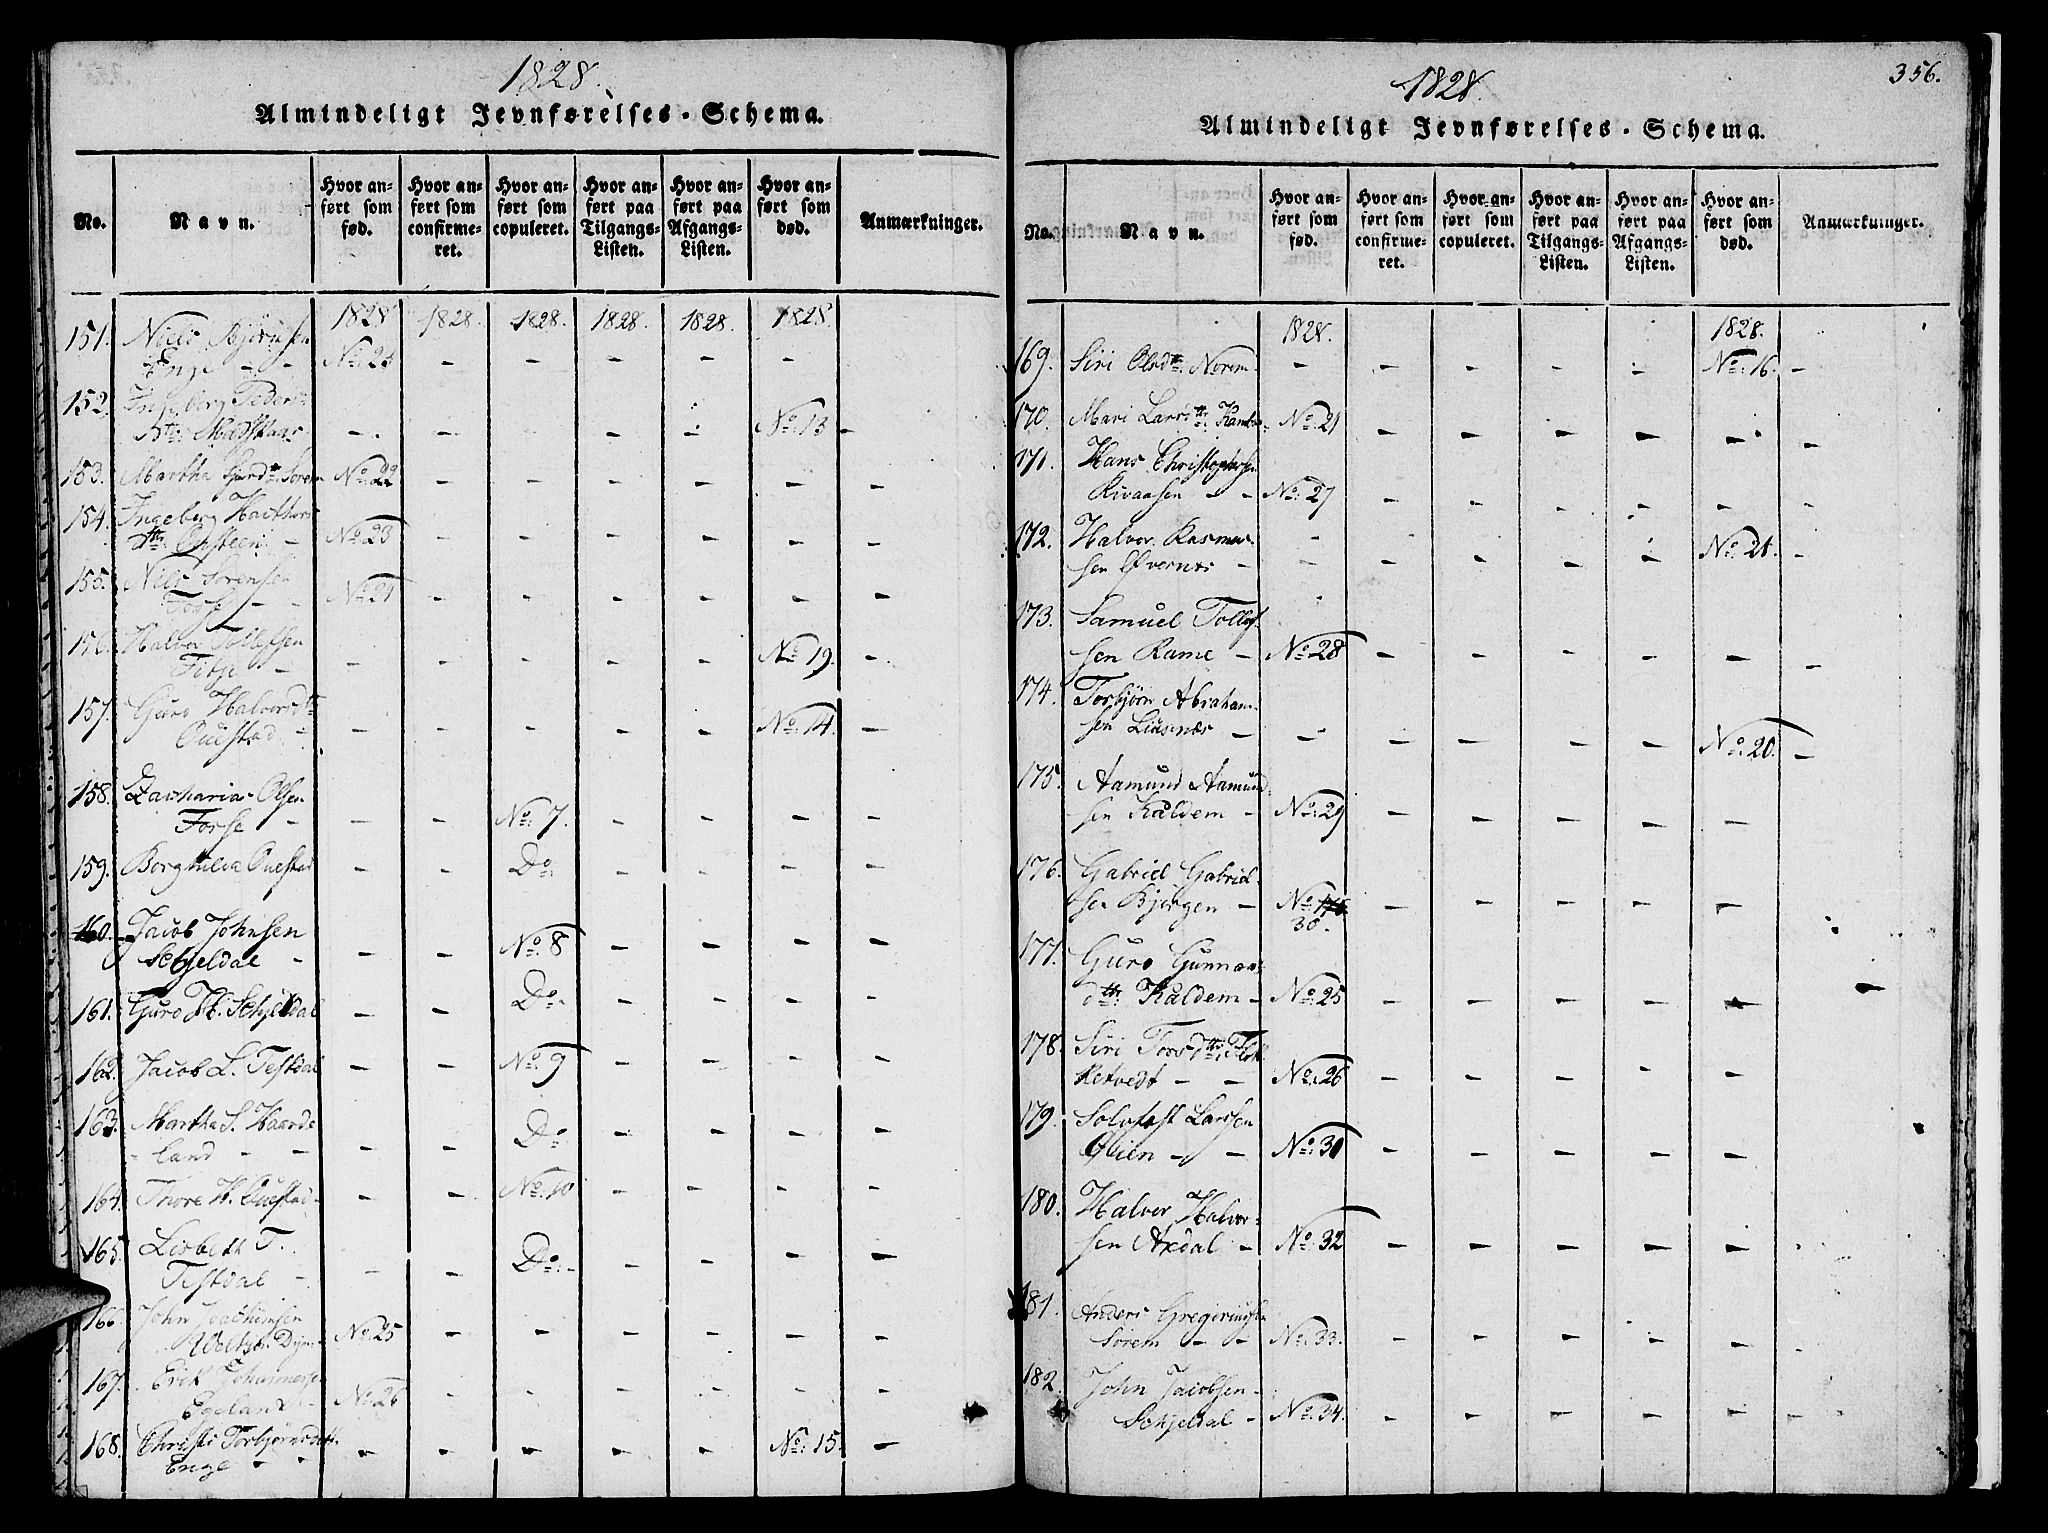 1828.
Almindeligt Jevnførelses-Schema.
No.
Navn.
Hvor an-
ført som
fød.
Hvor an-
ført som
confirme-
ret.
Hvor an-
ført som
copuleret.
Hvor an-
ført paa
Tilgangs-
Listen.
Hvor an-
ført paa
Afgangs-
Listen.
Hvor an-
ført som
død.
Anmærkninger.
1828 1828. 1828. 1828. 1828. 1828.
151. Niels Bjørnsen
Enge - - No: - - - - -
152. Ingeborg Peders-
dtr: - - - - - No: 13 -
153. Martha Sørem No: 22 - - - - - -
154. Ingeberg
dtr: No: 23 - - - - - -
155. Niels Sørensen
Forse - - No: 21 - - - - - -
156. Halvor Tollefsen
Titje - - - - - - No: 19. -
157. Guro Halvorsdtr
Questad - - - - - - No: 14. -
158. Zacharias Olsen
Forse - - - No: 7. - - - -
159. Borghilda Questad - - Do: - - - -
160. Jacob Johnsen
Schjeldal - - - No: 8 - - - -
161. Guro H. Schjeldal - - Do: - - - -
162. Jacob L. Testdal - - No: 9 - - - -
163. Martha S. Haarde
land - - - - Do: - - - -
164. Thore H. Questad - - No: 10 - - - -
165. Lisbeth T.
Testdal - - - Do: - - - - -
166. John Joachimsen
No: 25 - - - - - -
167. Erik Johannesen
Egeland - No: 26 - - - - - -
168. Christi Torbjørnsdatt
Enge - - - - - - - No: 15. -
356.
1828.
Almindeligt Jevnførelses-Schema.
No.
Navn.
Hvor an-
ført som
fød.
Hvor an-
ført som
confirme-
ret.
Hvor an-
ført som
copuleret.
Hvor an-
ført paa
Tilgangs-
Listen.
Hvor an-
ført paa
Afgangs-
Listen.
Hvor an-
ført som
død.
Anmærkninger.
1828. 1828.
169. Siri Olsdtr: Norem - - - - - No: 16. -
170. Mari Larsdtr: No: 21 - - - - - -
171. Hans Christophersen
- - No: 27 - - - - - -
172. Halvor Rasmus-
sen Øvernes - - - - - - No: 21. -
173. Samuel Tollef-
sen Rame - No: 28 - - - - - -
174. Torbjørn Abraham-
sen Liusnæs - - - - - - No: 20. -
175. Aamund Aamund-
sen Kaldem - No: 29 - - - - -
176. Gabriel Gabriel-
sen Bjørgen - No:
30. - - - - -
177. Guro Gunnars
dtr: Kaldem - No: 25 - - - - - -
178. Siri Torsdtr: Flek
ketvedt - - No: 26 - - - - -
179. Solvfast Larsen
Øien - - No: 30 - - - - -
180. Halvor Halvor-
sen Axdal - No: 32 - - - - -
181. Anders Gregoriusen
Sørem - - No: 33. - - - - - -
182. John Jacobsen -
Schjeldal - No: 34. - - - - - -